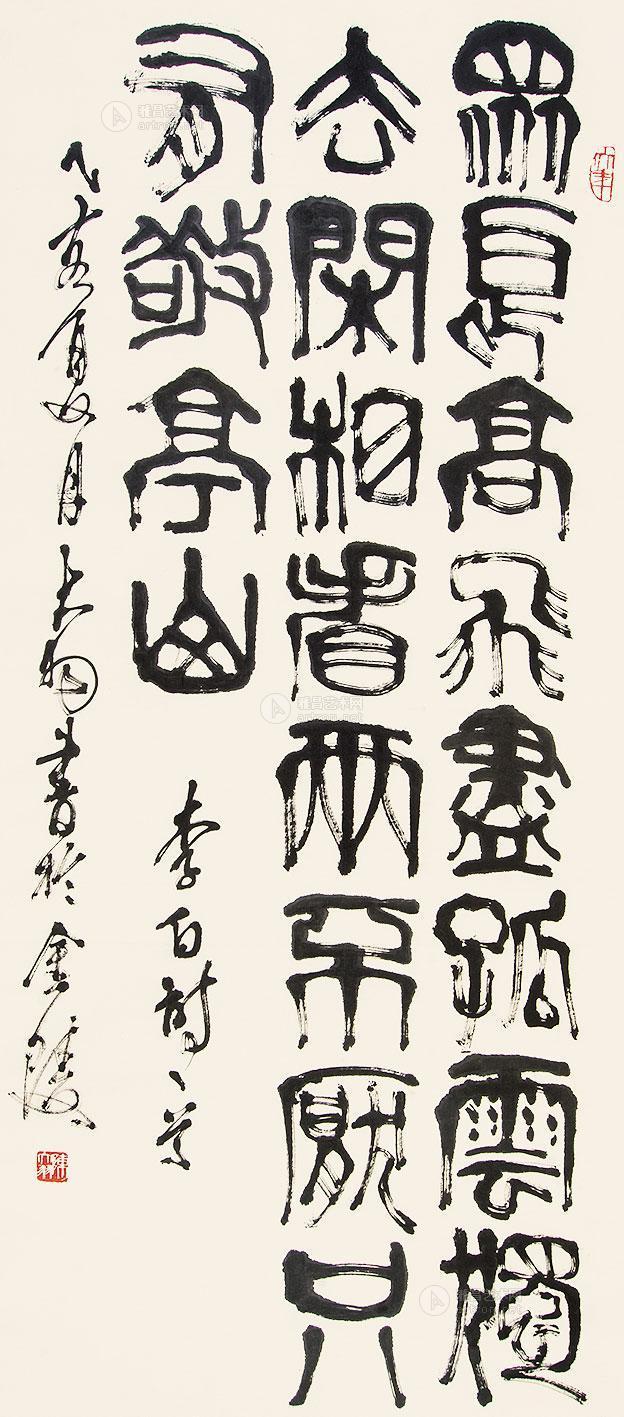 眾鳥高飛盡孤雲獨
去閑相看兩不厭只
有敬亭山
李白詩一首
乙亥夏月大羽書於金陵
雅昌艺术网
artron.net